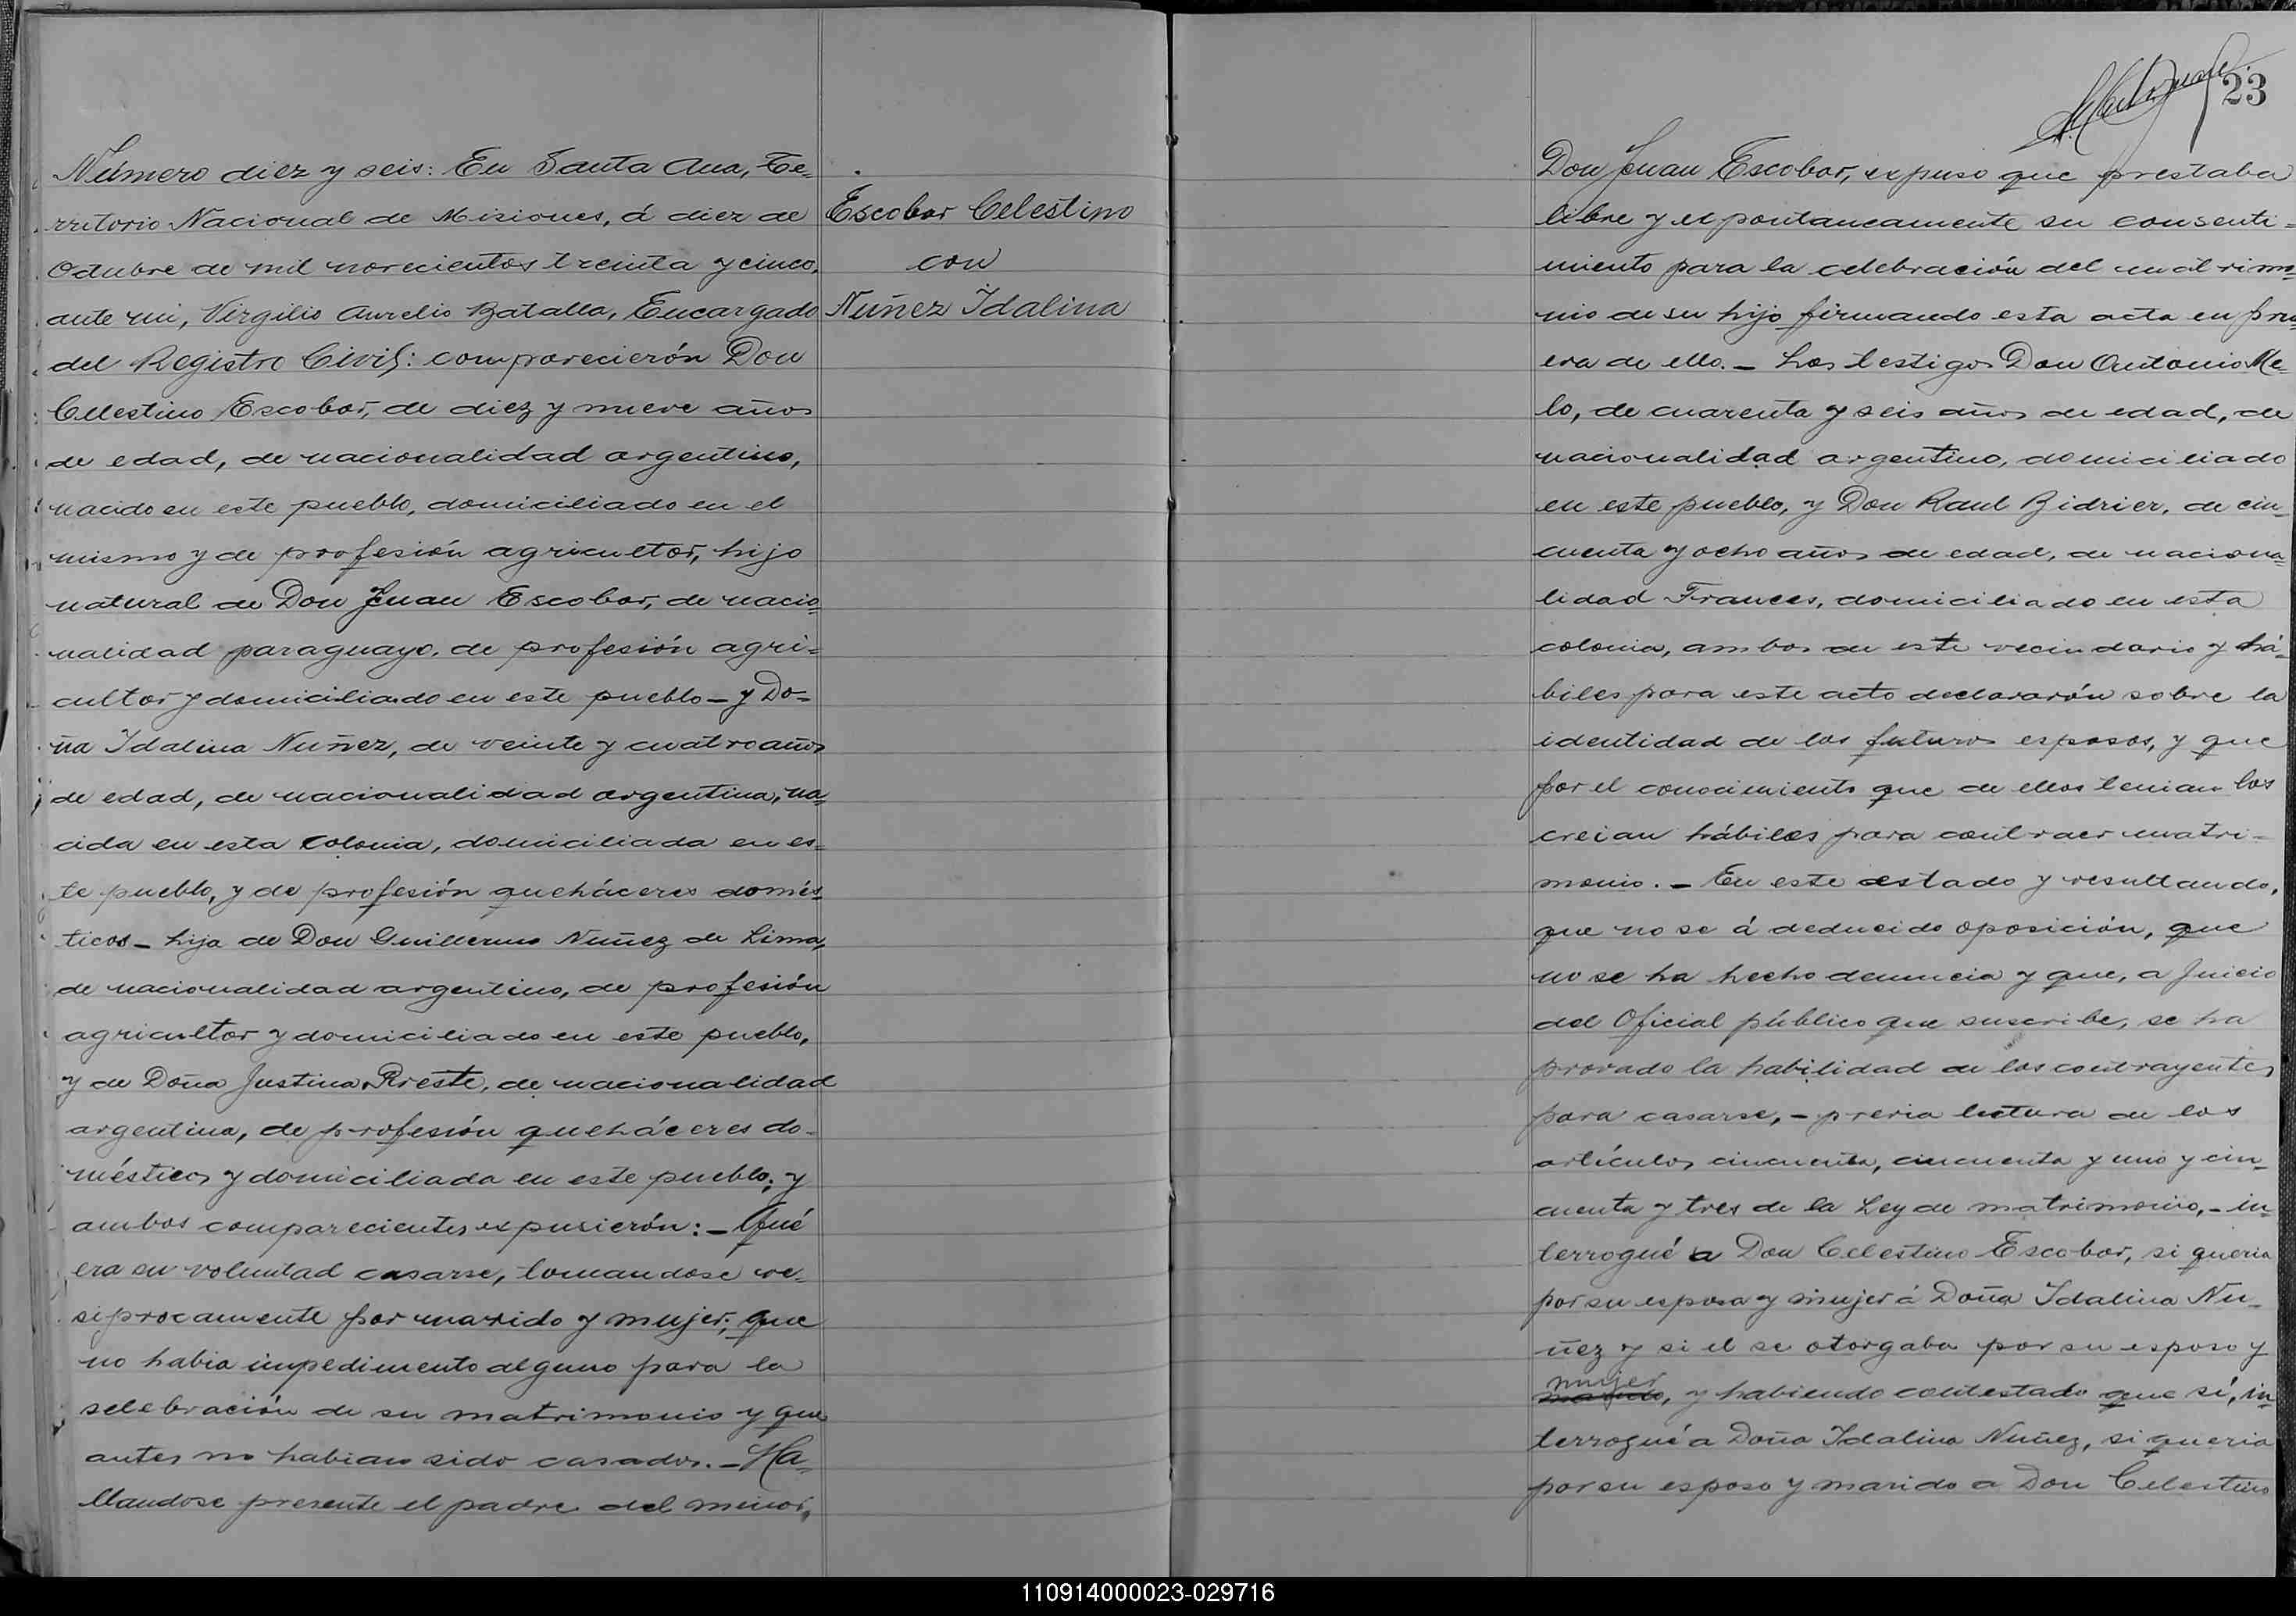 Número diez y seis: En Santa Ana, Te-
rritorio Nacional de Misiones, á diez de
Octubre de mil novecientos treinta y cinco,
ante mi, Virgilio Aurelio Batalla, Encargado
del Registro Civil: comparecierón Don
Celestino Escobar, de diez y nueve años
de edad, de nacionalidad argentino,
nacido en este pueblo, domiciliado en el
mismo y de profesión agricultor, hijo
natural de Don Juan Escobar, de nacio-
nalidad paraguayo, de profesión agri-
cultor y domiciliado en este pueblo - y Do-
ña Idalina Nuñez, de veinte y cuatro años
de edad, de nacionalidad argentina, na-
cida en esta colonia, domiciliada en es-
te pueblo, y de profesión queháceres domés-
ticos - hija de Don Guillermo Nuñez de Lima,
de nacionalidad argentino, de profesión
agricultor y domiciliado en este pueblo,
y de Doña Justina Rreste, de nacionalidad
argentina, de profesión queháceres do-
mésticos y domiciliada en este pueblo; y
ambos comparecientes expusierón: - Qué
era su voluntad casarse, tomandose re-
siprocamente por marido y mujer; que
no habia impedimento alguno para la
selebración de su matrimonio y que
antes no habian sido casados. - Ha-
llandose presente el padre del menor,
Escobar Celestino
con
Nuñez Idalina
23
Don Juan Escobar, expuso que prestaba
libre y expontaneamente su consenti-
miento para la celebración del matrimo-
nio de su hijo firmando esta acta en pru-
eva de ello. - Los testigos Don Antonio Me-
lo, de cuarenta y seis años de edad, de
nacionalidad argentino, domiciliado
en este pueblo, y Don Raul Bidrier, de cin-
cuenta y ocho años de edad, de naciona-
lidad Frances, domiciliado en esta
colonia, ambos de este vecindario y há-
biles para este acto declararón sobre la
identidad de los futuros esposos, y que
por el conocimiento que de ellos tenian los
creian hábiles para contraer matri-
monio. - En este estado y resultando,
que no se á deducido oposición, que
no se ha hecho denuncia y que, a Juicio
del Oficial público que suscribe, se ha
provado la habilidad de los contrayentes
para casarse, - previa lectura de los
artículos cincuenta, cincuenta y uno y cin-
cuenta y tres de la Ley de matrimonio, - in-
terrogué a Don Celestino Escobar, si queria
por su esposa y mujer á Doña Idalina Nu-
ñez y si el se otorgaba por su esposo y
mujer
marido, y habiendo contestado que sí, in-
terrogué a Doña Idalina Nuñez, si queria
por su esposo y marido a Don Celestino
110914000023-029716